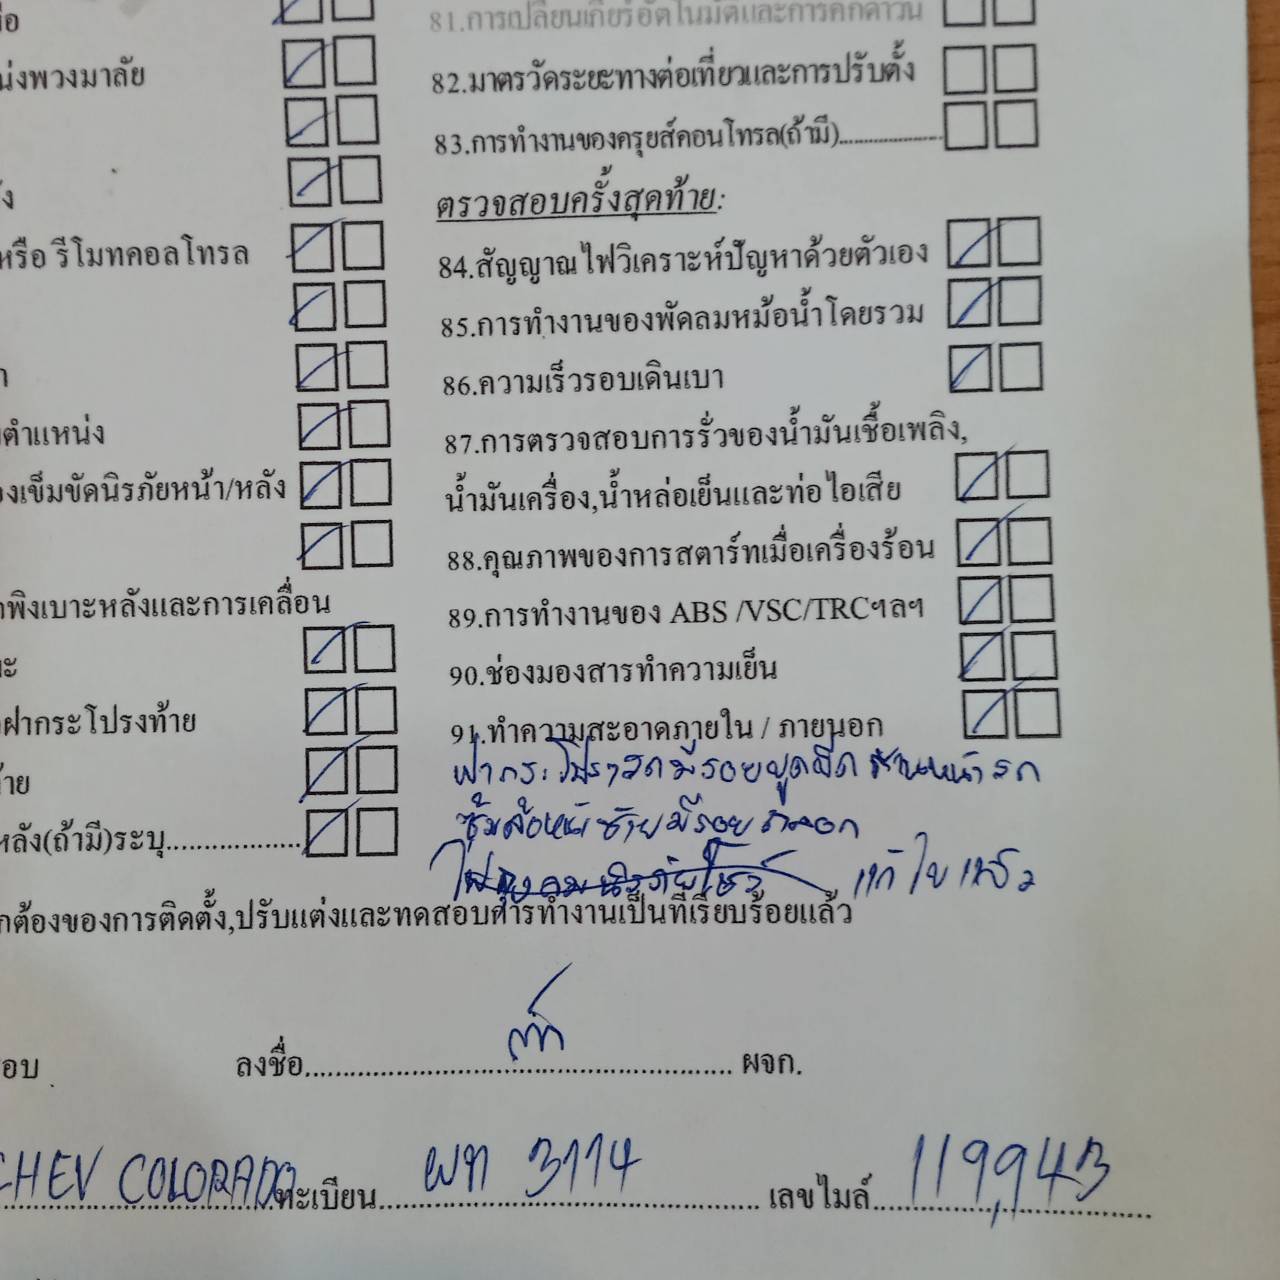 ่อ
น่งพวงมาลัย
ัง
หรือ รีโมทคอลโทรล
า
ตำแหน่ง
องเข็มขัดนิรภัยหน้า/หลัง
พิงเบาะหลังและการเคลื่อน
ะ
ฝากระโปรงท้าย
้าย
หลัง(ถ้ามี)ระบุ
81.การเปลี่ยนเกียร์อัตโนมัติและการคิกดาวน์
82.มาตรวัดระยะทางต่อเที่ยวและการปรับตั้ง
83.การทำงานของครุยส์คอนโทรล(ถ้ามี)
ตรวจสอบครั้งสุดท้าย:
84.สัญญาณไฟวิเคราะห์ปัญหาด้วยตัวเอง
85.การทำงานของพัดลมหม้อน้ำโดยรวม
86.ความเร็วรอบเดินเบา
87.การตรวจสอบการรั่วของน้ำมันเชื้อเพลิง,
น้ำมันเครื่อง,น้ำหล่อเย็นและท่อไอเสีย
88.คุณภาพของการสตาร์ทเมื่อเครื่องร้อน
89.การทำงานของ ABS /VSC/TRCฯลฯ
90.ช่องมองสารทำความเย็น
91.ทำความสะอาดภายใน / ภายนอก
ฝากระโปรง มีรอยขูดขีด ด้านหน้ารถ
ซุ้มล้อหน้าซ้ายมีรอยถลอก
ไฟถุงลมนิรภัยโชว์ แก้ไขแล้ว
กต้องของการติดตั้ง,ปรับแต่งและทดสอบการทำงานเป็นที่เรียบร้อยแล้ว
อบ ลงชื่อ ผจก.
CHEV COLORADO ทะเบียน ผท 3114 เลขไมล์ 119,943